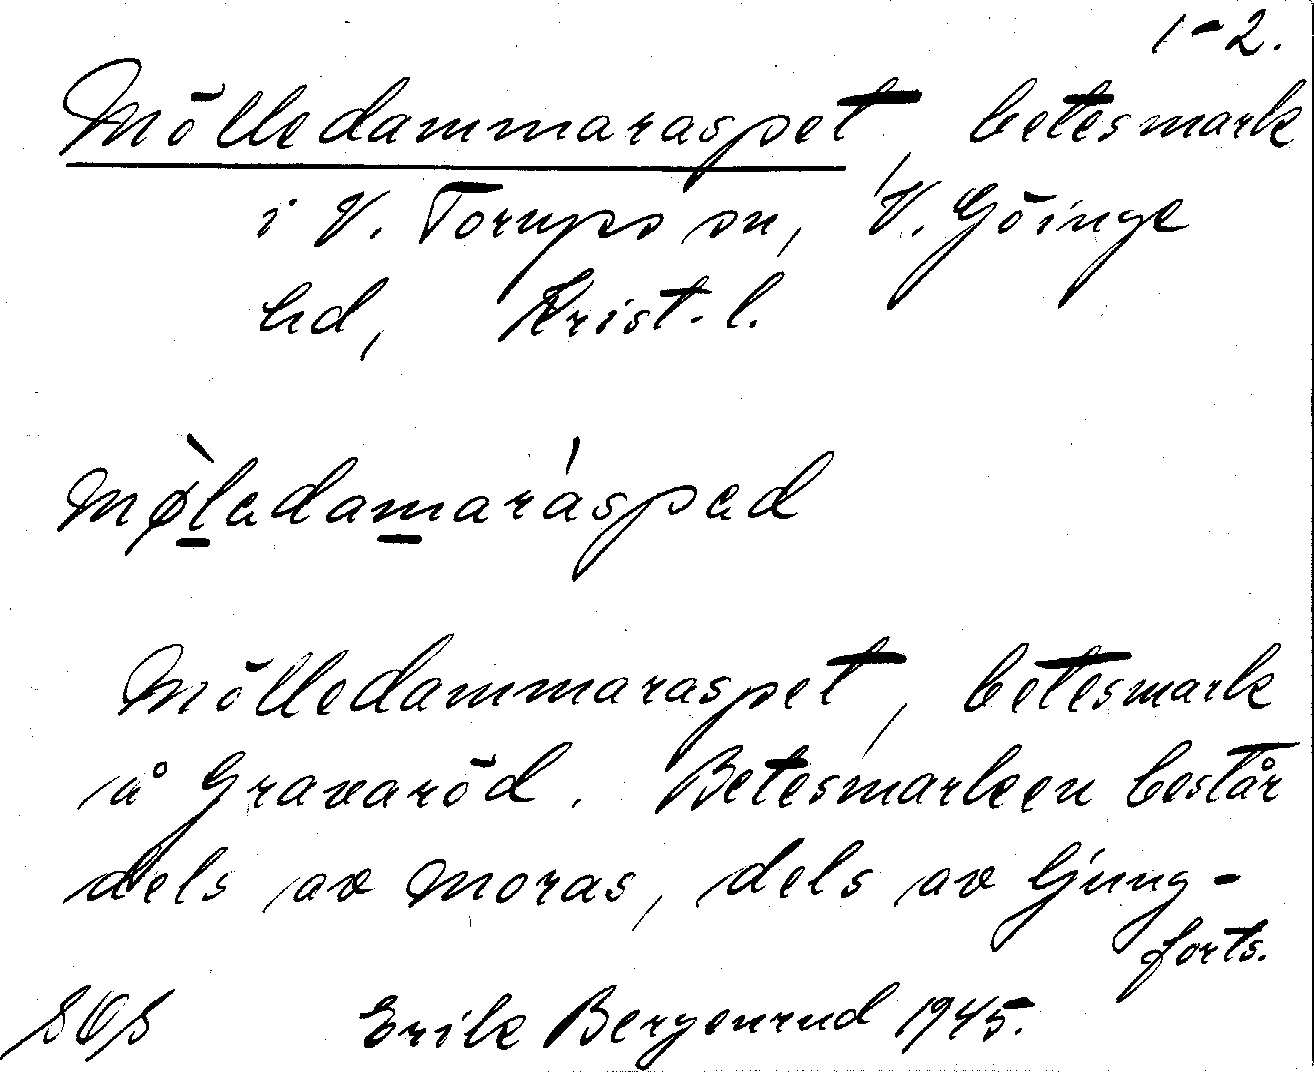 1-2.
Mölledammaraspet, betesmark
i V. Torups sn, V. Göinge
hd, Krist. l.
mø̀ladamaráspad
Mölledammaraspet, betesmark
å Gravaröd. Betesmarken består
dels av moras, dels av ljung-
forts.
SOS Erik Bergenrud 1945.